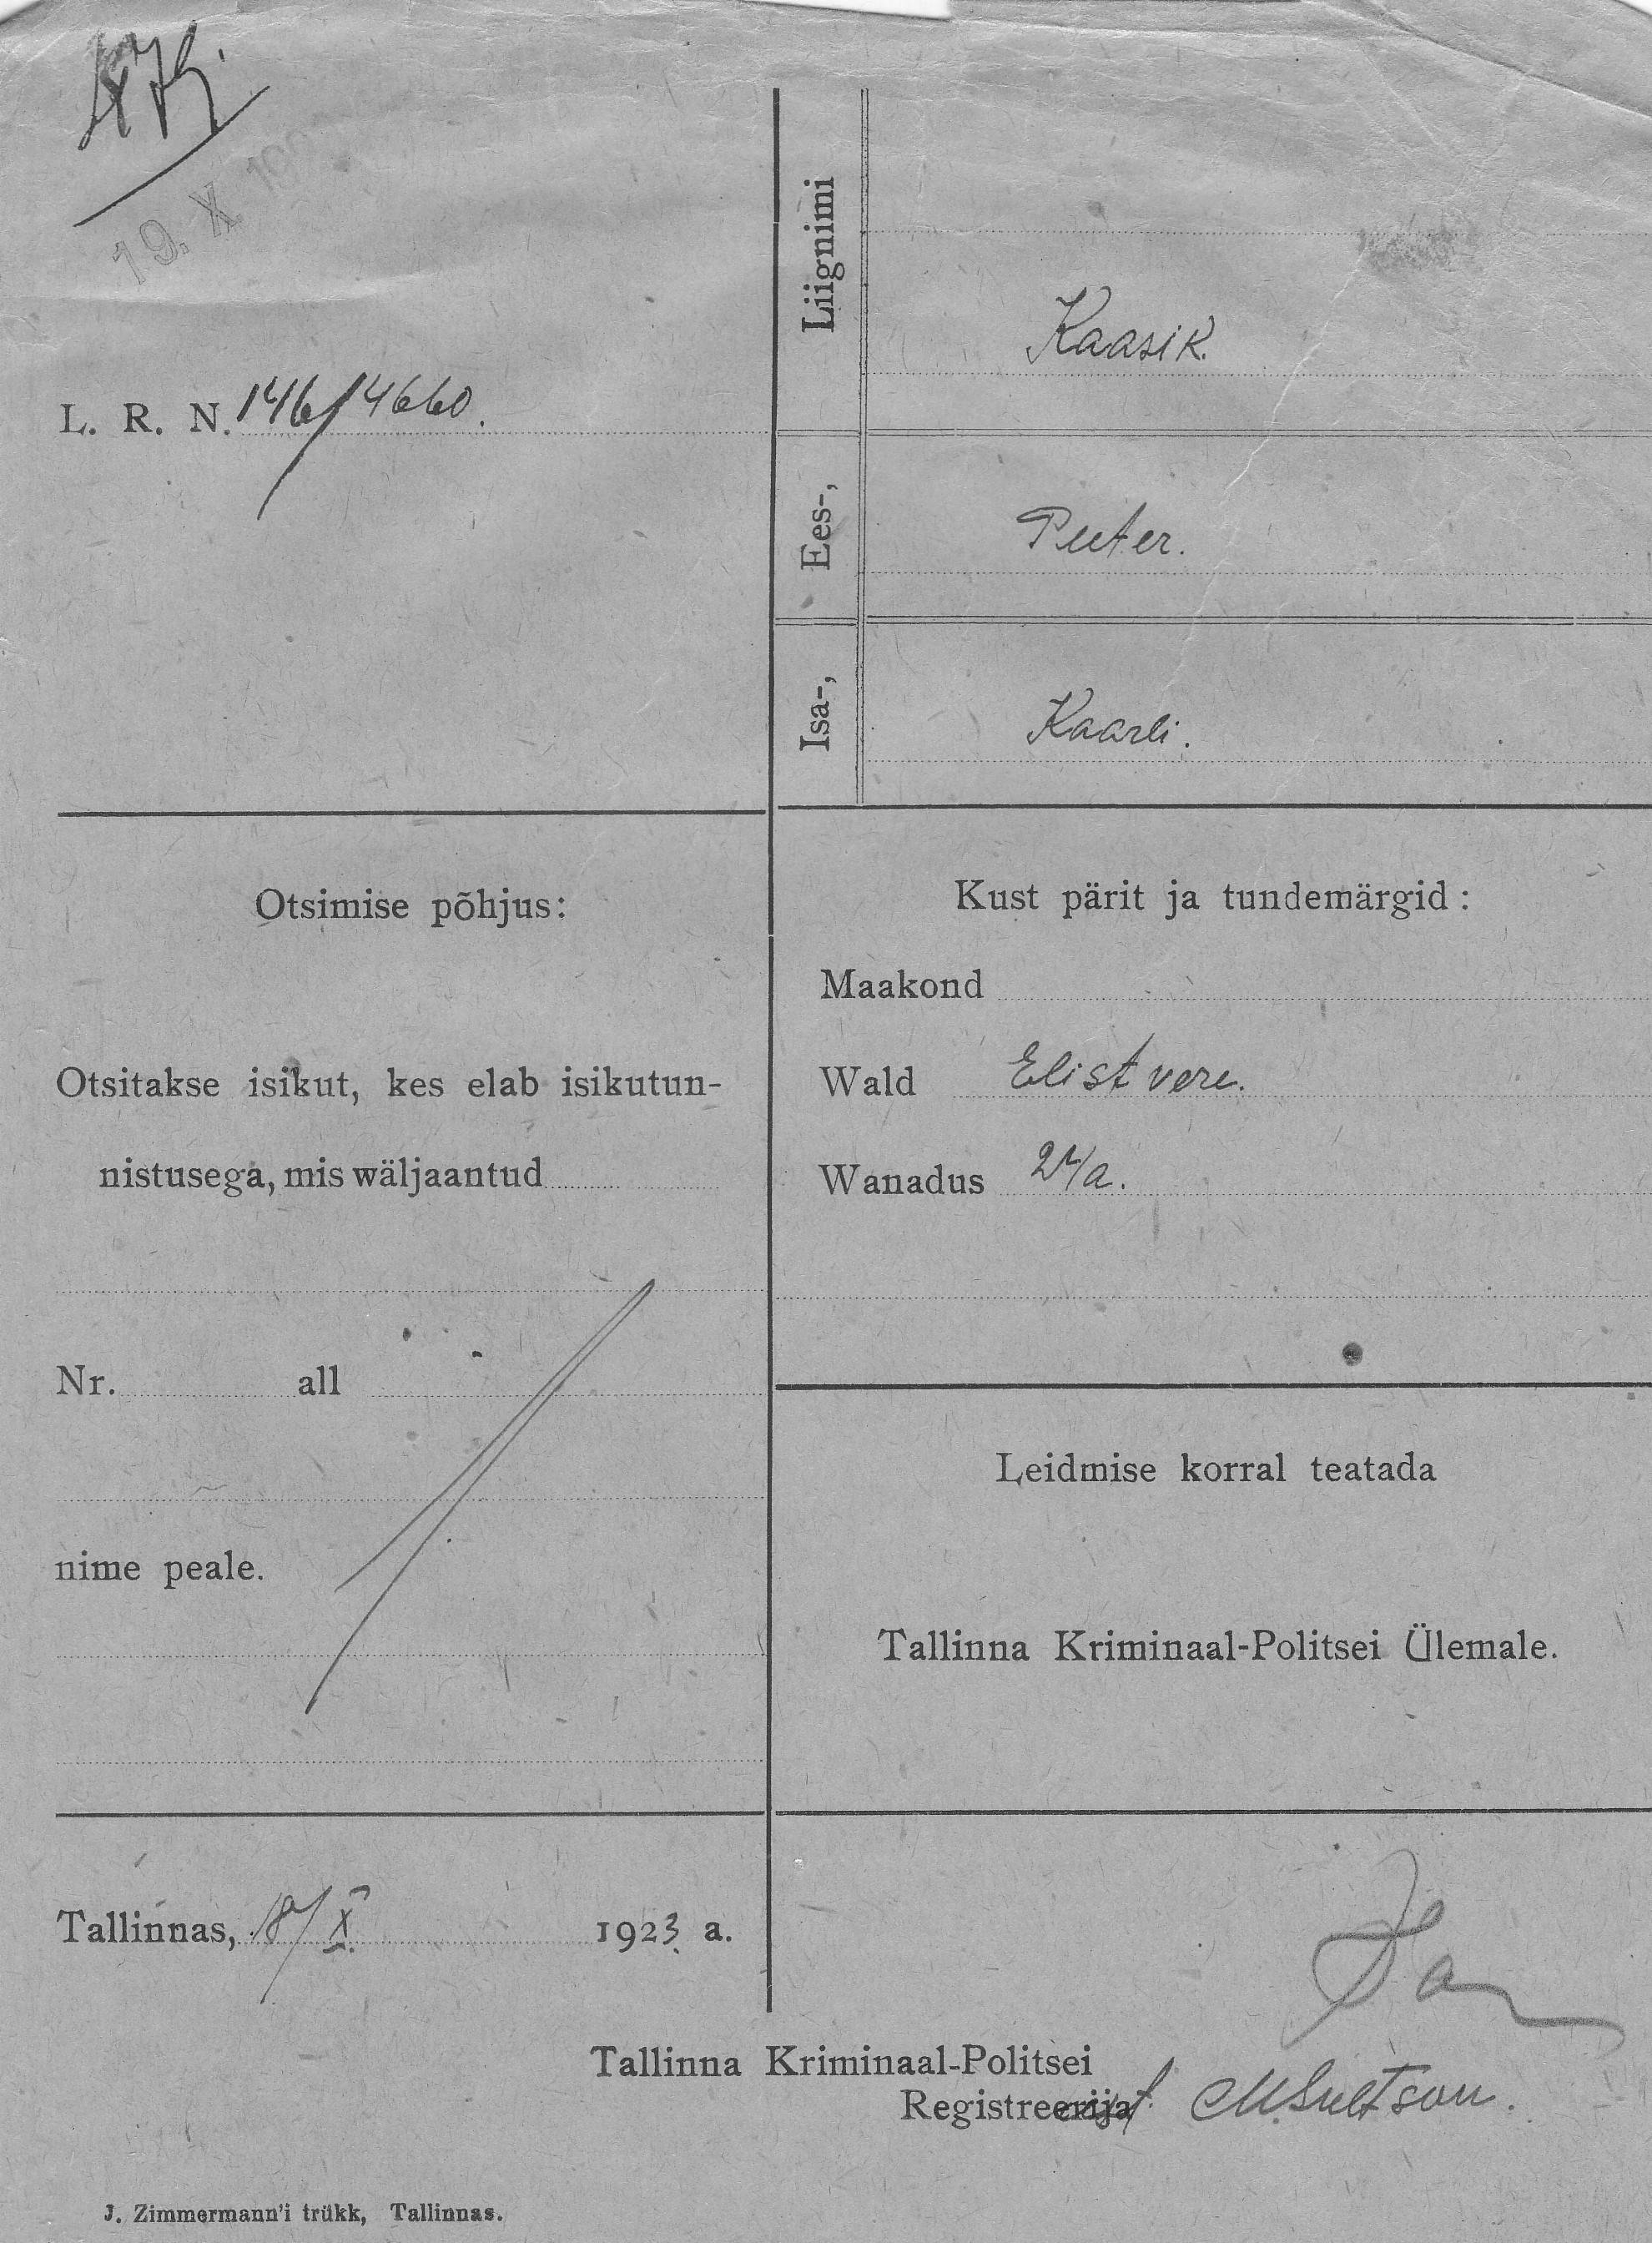 19. X
L. R. N. 146/4660.
Liignimi
Kaasik.
Ees-,
Peeter.
Isa-,
Kaarli.
Otsimise põhjus:
Otsitakse isikut, kes elab isikutun-
nistusega, mis wäljaantud
Nr. all
nime peale.
Kust pärit ja tundemärgid:
Maakond
Wald Elistvere.
Wanadus
Leidmise korral teatada
Tallinna Kriminaal-Politsei Ülemale.
Tallinnas, 18/X. 1923 a.
Tallinna Kriminaal-Politsei
Registreerija
J. Zimmermann'i trükk, Tallinnas.